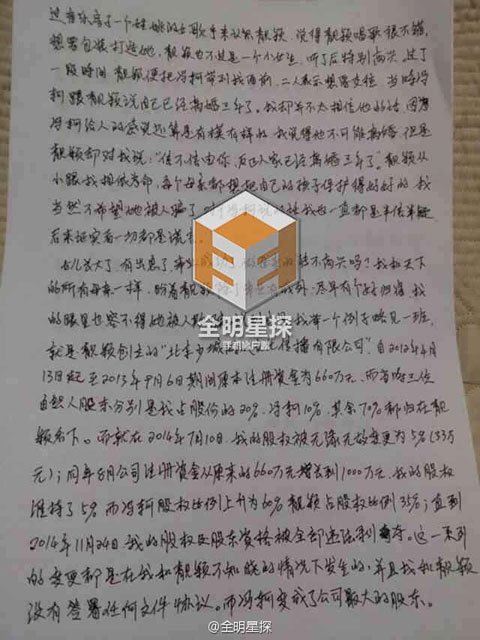 一个
认识靓颖，说得靓颖唱歌很不错，
想署包装打造她，靓颖也不过是一个小女生，听了后特别高兴。过了
一段时间靓颖便把冯柯带到我面前，二人表示想署交往，当时冯
柯跟靓颖说自己已经离婚三年了。我却并不太相信他的话，因为
冯柯给人的感觉还算是有模有样的，我觉得他不可能离婚，但是
靓颖却对我说：“信不信由你，反正人家已经离婚三年了”。靓颖从
小跟我相依为命，每个母亲都想把自己的孩子保护得好好的，我
当然不希望她被人骗了 冯柯说的话我也一直都是半信半疑
后来证实着一切都是谎言。
女儿长大了，有出息了 不高兴吗？我和天下
的所有母亲一样，盼着靓颖
的眼里也容不得她被人 举一个例子略见一班，
就是靓颖创立的“北京少城 文化传播有限公司”，自2012年4月
13日起至2013年9月6日期间原本注册资金为660万元，而当时三位
自然人股东分别是我占股份的20%，冯柯10%，其余70%都归在靓
颖名下。而就在2014年7月10日，我的股权被无缘无故变更为5%（33万
元）；同年8月公司注册资金从原来的660万元增长到1000万元，我的股权
维持了5%而冯柯股权比例上升为60%靓颖占股权比例35%；直到
2014年11月24日我的股权及股东资格被全部违法剥夺。这一系列
的变更都是在我和靓颖不知晓的情况下发生的，并且我和靓颖
没有签署任何文件协议。而冯柯变成了公司最大的股东。
全明星探
手机客户端
@全明星探